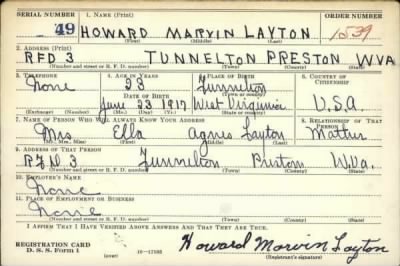 SERIAL NUMBER 1. NAME (Print) ORDER NUMBER
49 HOWARD MARVIN LAYTON 1539
(First) (Middle) (Last)
2. ADDRESS (Print)
RFD 3 TUNNELTON PRESTON WVA
(Number and street or R. F. D. number) (Town) (County) (State)
3. TELEPHONE 4. AGE IN YEARS 5. PLACE OF BIRTH 6. COUNTRY OF CITIZENSHIP
None 23 Tunnelton
DATE OF BIRTH (Town or county)
June 23 1917 West Virginia U.S.A.
(Exchange) (Number) (Mo.) (Day) (Yr.) (State or country)
7. NAME OF PERSON WHO WILL ALWAYS KNOW YOUR ADDRESS 8. RELATIONSHIP OF THAT PERSON
Mrs Ella Agnes Layton Mother
(Mr., Mrs., Miss) (First) (Middle) (Last)
9. ADDRESS OF THAT PERSON
R.F.D 3 Tunnelton Preston W.Va.
(Number and street or R. F. D. number) (Town) (County) (State)
10. EMPLOYER'S NAME
None
11. PLACE OF EMPLOYMENT OR BUSINESS
None
(Number and street or R. F. D. number) (Town) (County) (State)
I AFFIRM THAT I HAVE VERIFIED ABOVE ANSWERS AND THAT THEY ARE TRUE.
REGISTRATION CARD Howard Marvin Layton
D. S. S. Form 1 (over) 16-17105 (Registrant's signature)